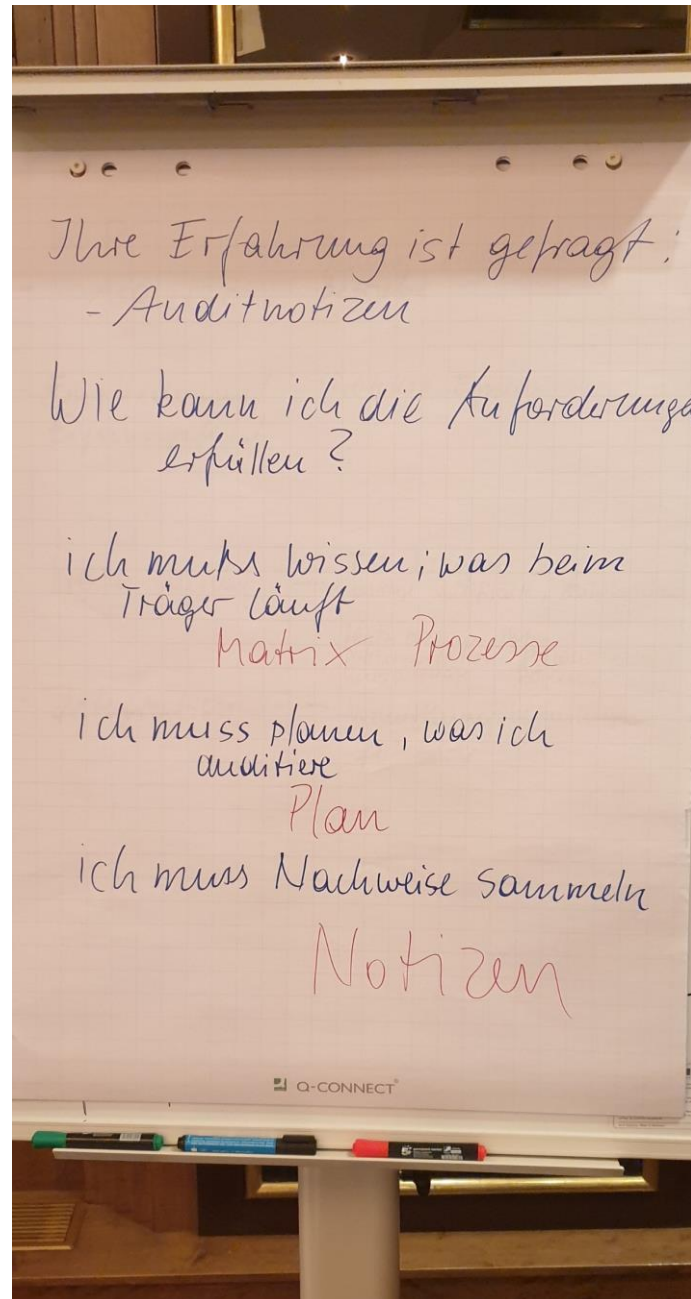 Ihre Erfahrung ist gefragt:
- Auditnotizen
Wie kann ich die Anforderunge
erfüllen?
ich muss wissen, was beim
Träger läuft
Matrix Prozesse
ich muss planen, was ich
auditiere
Plan
ich muss Nachweise sammeln
Notizen
Q-CONNECT®